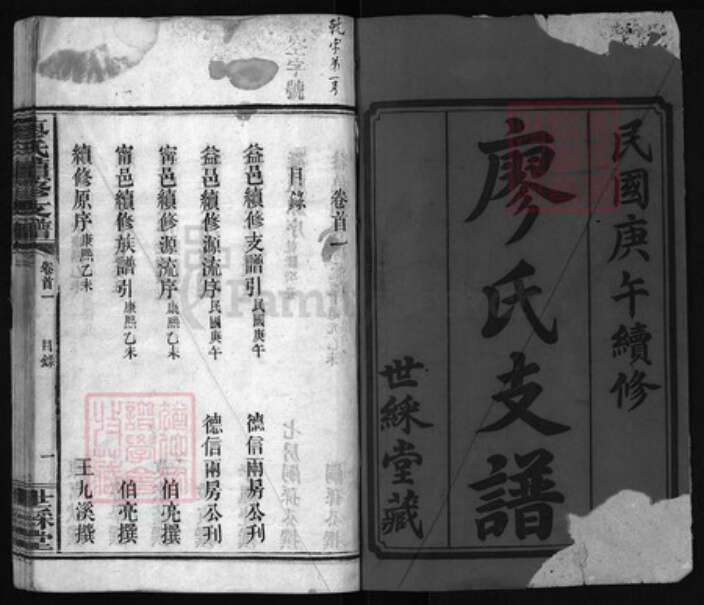 民國庚午續修
廖氏支譜
世綵堂藏
乾字第一号
卷首一
目錄
益邑續修支譜引民國庚午 德信兩房公刊
益邑續修源流序民國庚午 德信兩房公刊
甯邑續修源流序康熙乙未 伯亮撰
甯邑續修族譜引康熙乙未 伯亮撰
續修原序康熙乙未 王九溪撰
廖氏續修支譜
卷首一
目錄
一
世綵堂